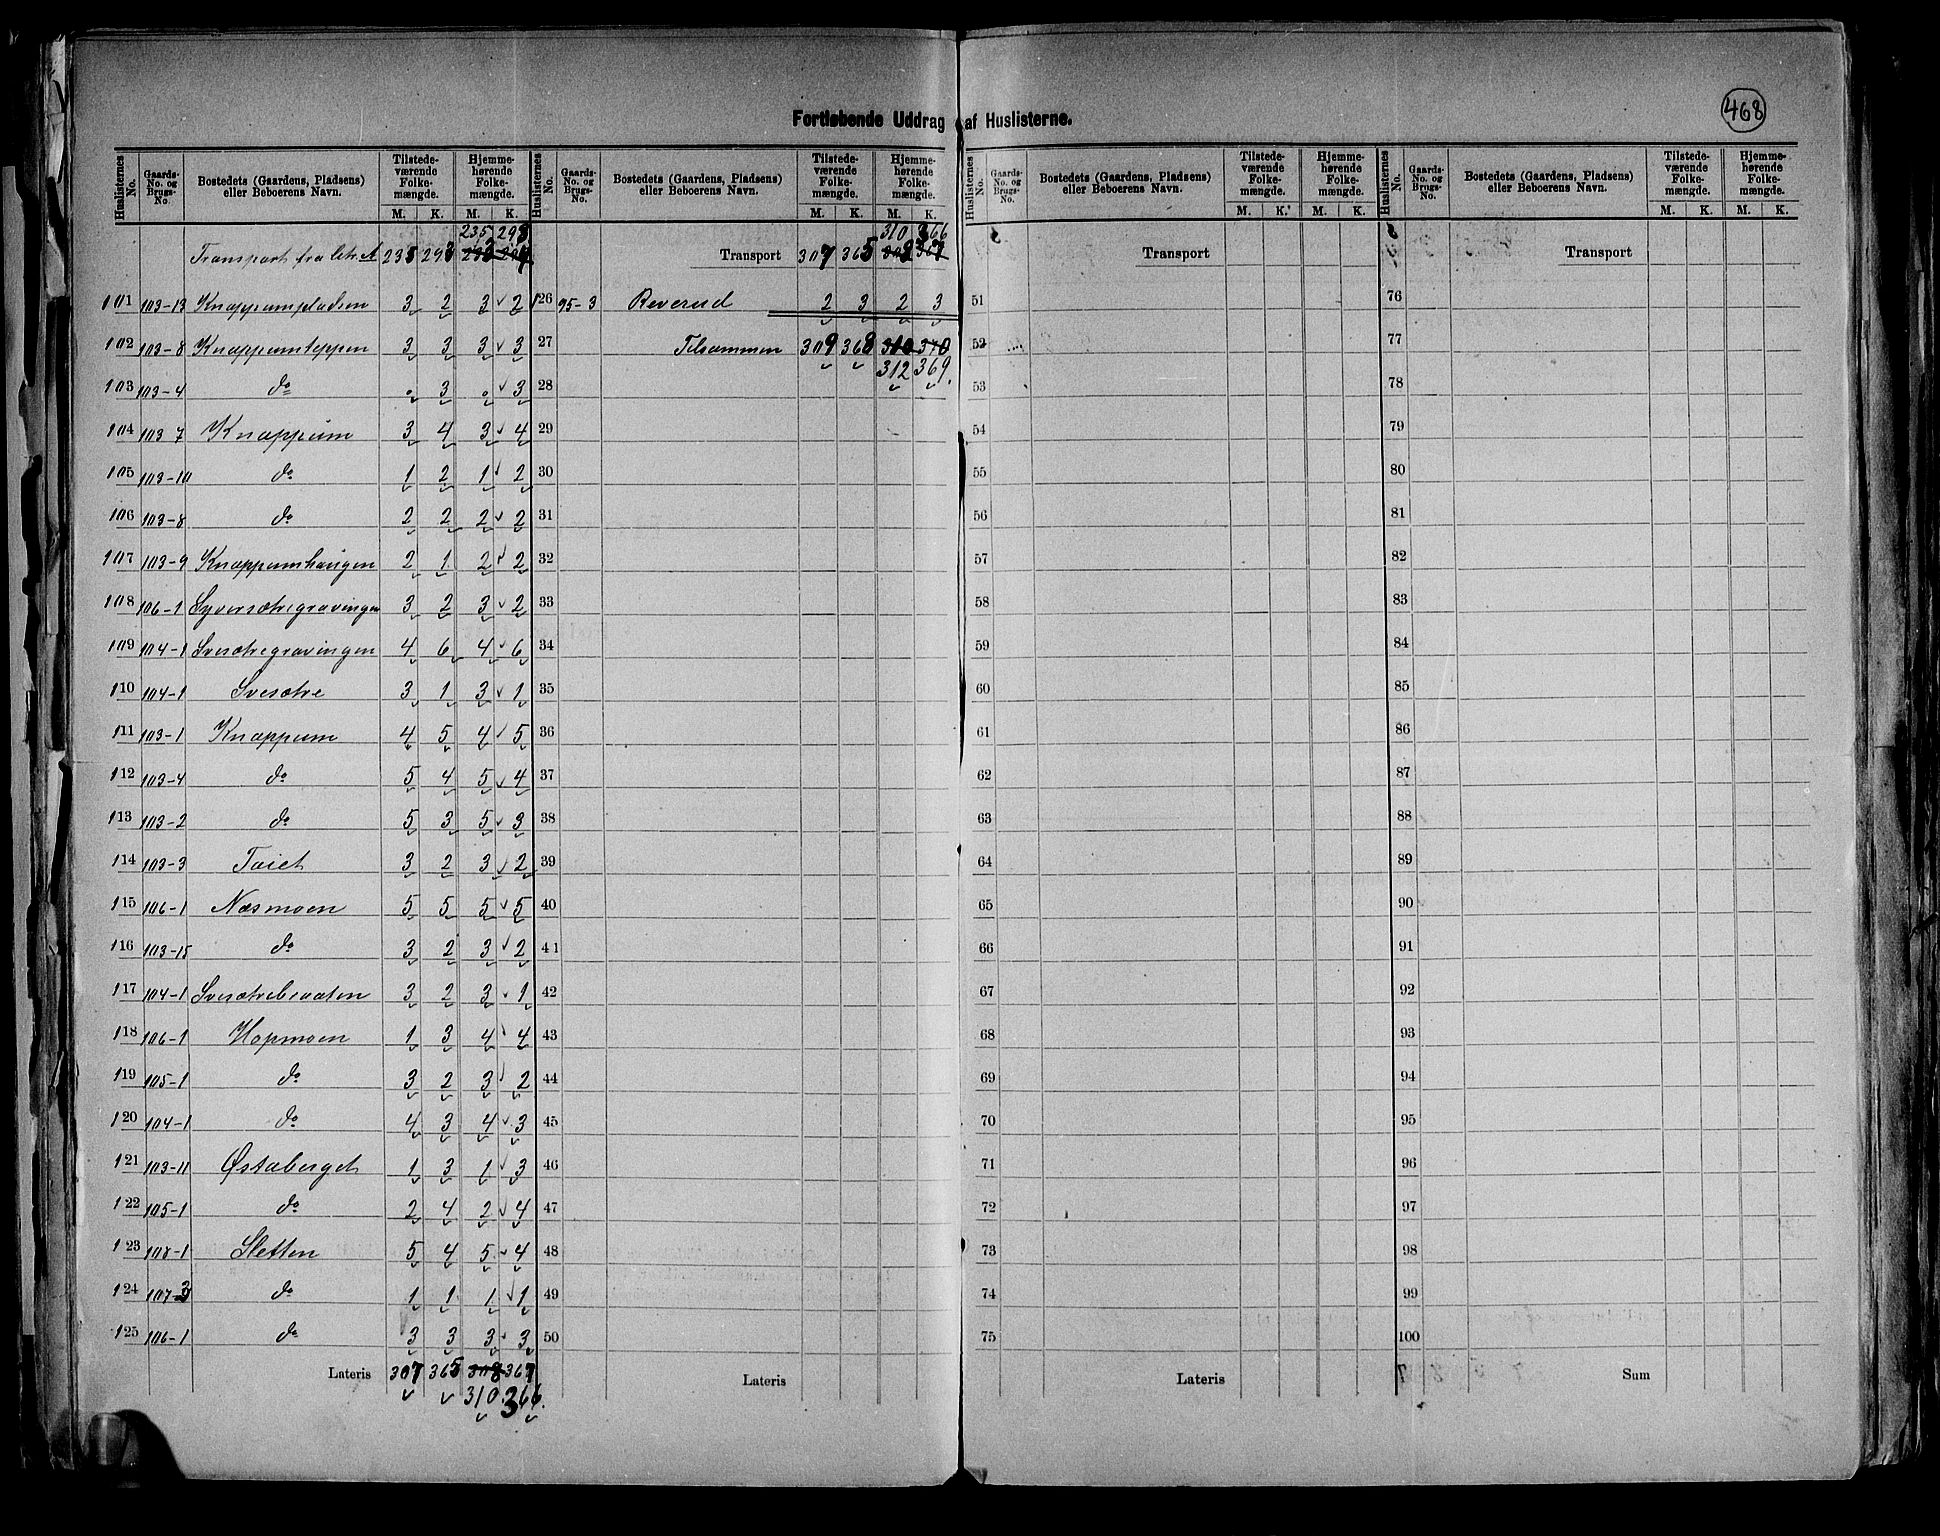 468
Fortløbende Uddrag af Huslisterne.
Huslisternes No. Gaards-No. og Brugs-No. Bostedets (Gaardens, Pladsens) eller Beboerens Navn. Tilstedeværende Folkemængde. M. K. Hjemmehørende Folkemængde. M. K.
Huslisternes No. Gaards-No. og Brugs-No. Bostedets (Gaardens, Pladsens) eller Beboerens Navn. Tilstedeværende Folkemængde. M. K. Hjemmehørende Folkemængde. M. K.
Huslisternes No. Gaards-No. og Brugs-No. Bostedets (Gaardens, Pladsens) eller Beboerens Navn. Tilstedeværende Folkemængde. M. K. Hjemmehørende Folkemængde. M. K.
Huslisternes No. Gaards-No. og Brugs-No. Bostedets (Gaardens, Pladsens) eller Beboerens Navn. Tilstedeværende Folkemængde. M. K. Hjemmehørende Folkemængde. M. K.
235 298
Transport fra litr. A 235 293
101 103-13 Knappumpladsen 3 2 3 2
102 103-8 Knappumteppen 3 3 3 3
103 103-4 do . 3 . 3
104 103 7 Knappum 3 4 3 4
105 103-10 do 1 2 1 2
106 103-8 do 2 2 2 2
107 103-9 Knappumhaugen 2 1 2 2
108 106-1 Syversætregravingen 3 2 3 2
109 104-1 Svesætregravingen 4 6 4 6
110 104-1 Svesætre 3 1 3 1
111 103-1 Knappum 4 5 4 5
112 103-4 do 5 4 5 4
113 103-2 do 5 3 5 3
114 103-3 Taiet 3 2 3 2
115 106-1 Næsmoen 5 5 5 5
116 103-15 do 3 2 3 2
117 104-1 Svesætrebraaten 3 2 3 1
118 106-1 Hopmoen 1 3 4 4
119 105-1 do 3 2 3 2
120 104-1 do 4 3 4 3
121 103-11 Østaberget 1 3 1 3
122 105-1 do 2 4 2 4
123 108-1 Sletten 5 4 5 4
124 107-3 do 1 1 1 1
125 106-1 do 3 3 3 3
Lateris 307 365 308 367
310 366
310 366
Transport 307 365 308 367
126 95-3 Reverud 2 3 2 3
27 Tilsammen 309 368 310 370
312 369.
28
29
30
31
32
33
34
35
36
37
38
39
40
41
42
43
44
45
46
47
48
49
50
Lateris
Transport
51
52
53
54
55
56
57
58
59
60
61
62
63
64
65
66
67
68
69
70
71
72
73
74
75
Lateris
Transport
76
77
78
79
80
81
82
83
84
85
86
87
88
89
90
91
92
93
94
95
96
97
98
99
100
Sum